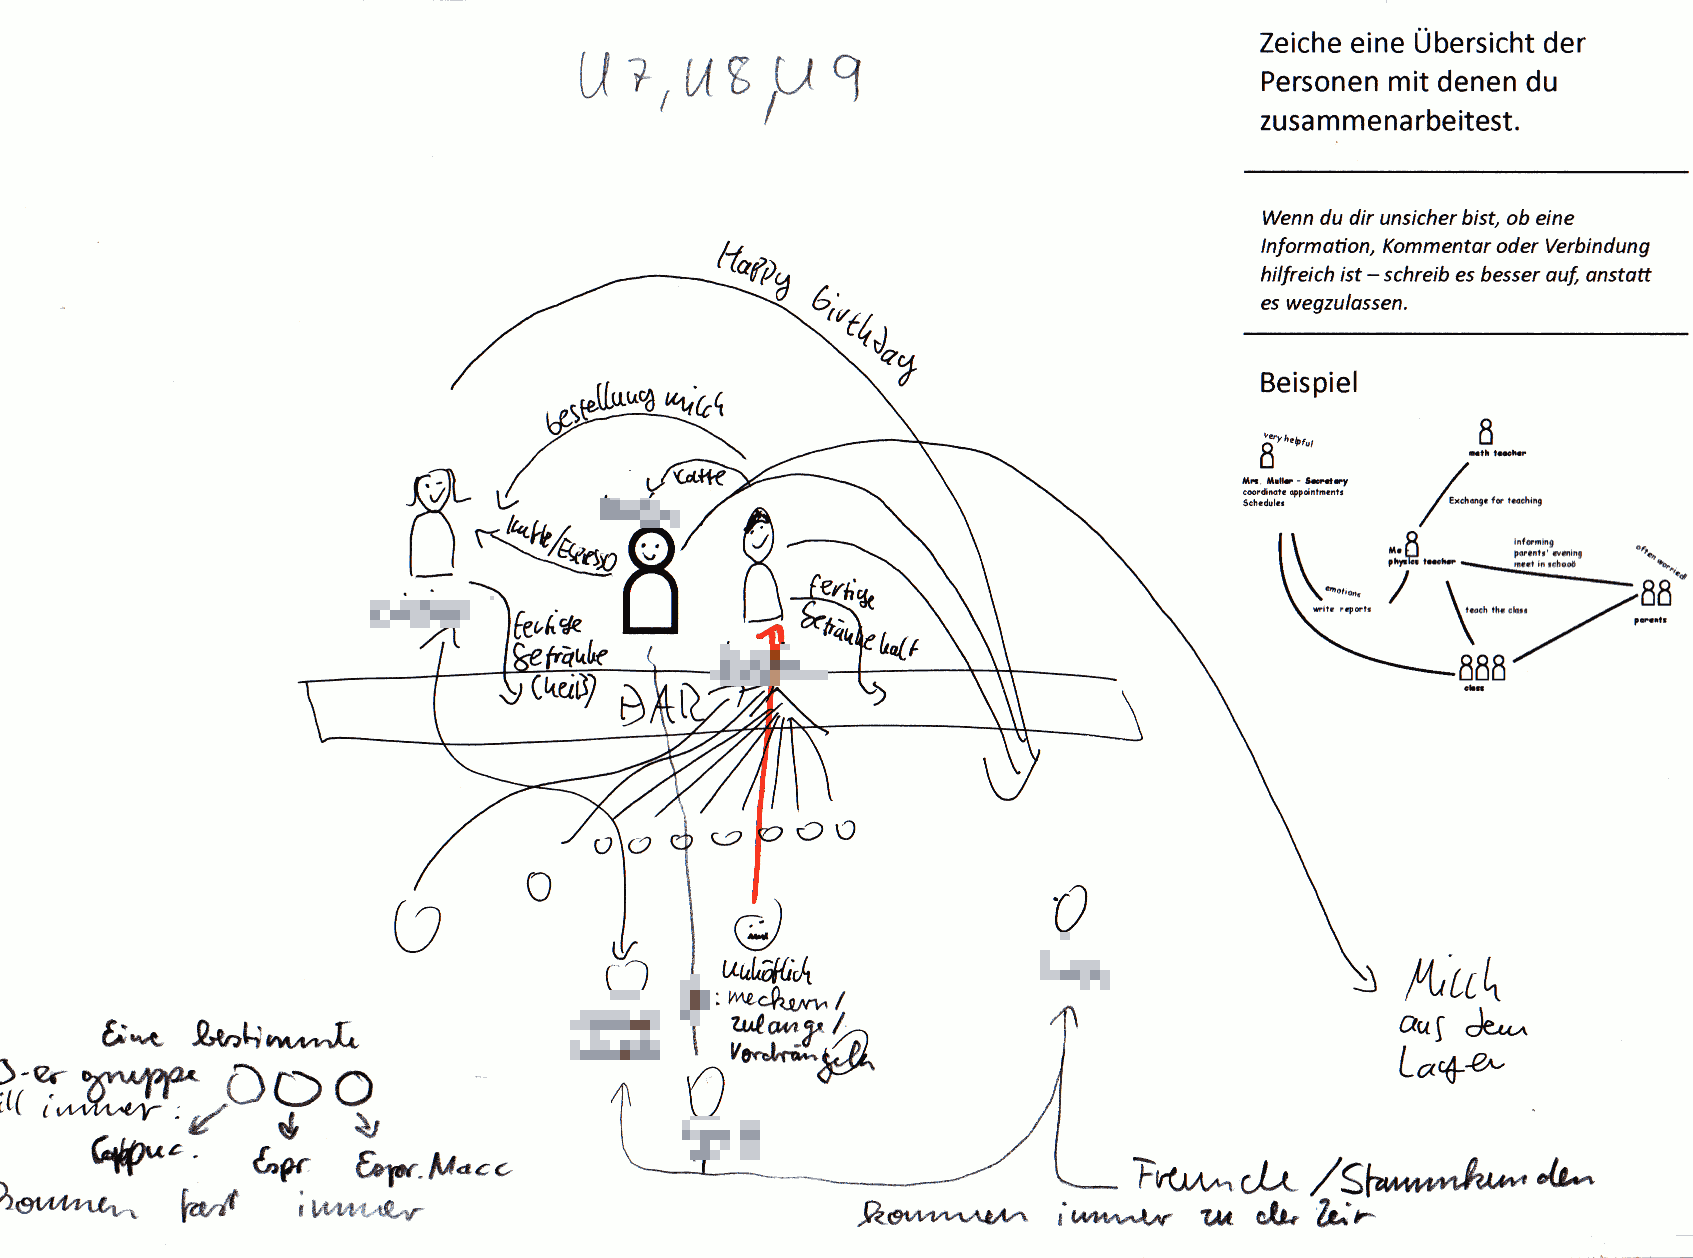 U7, U8, U9
Zeiche eine Übersicht der
Personen mit denen du
zusammenarbeitest.
Wenn du dir unsicher bist, ob eine
Information, Kommentar oder Verbindung
hilfreich ist – schreib es besser auf, anstatt
es wegzulassen.
Beispiel
very helpful
Mrs. Muller - Secretary
coordinate appointments
Schedules
math teacher
Exchange for teaching
Me
physics teacher
informing
parents' evening
meet in school
often worried
parents
emotions
write reports
teach the class
class
Happy birthday
bestellung milch
Kaffe/Espresso
fertige
Getränke
(heiß)
fertige
Getränke kalt
BAR
unhöflich
: meckern/
zulange/
Vordrängeln
Milch
aus dem
Lager
Eine bestimmte
3-er gruppe
immer:
Cappuc.
Espr.
Espr. Macc
kommen fast immer
Freunde/Stammkunden
kommen immer zu der Zeit